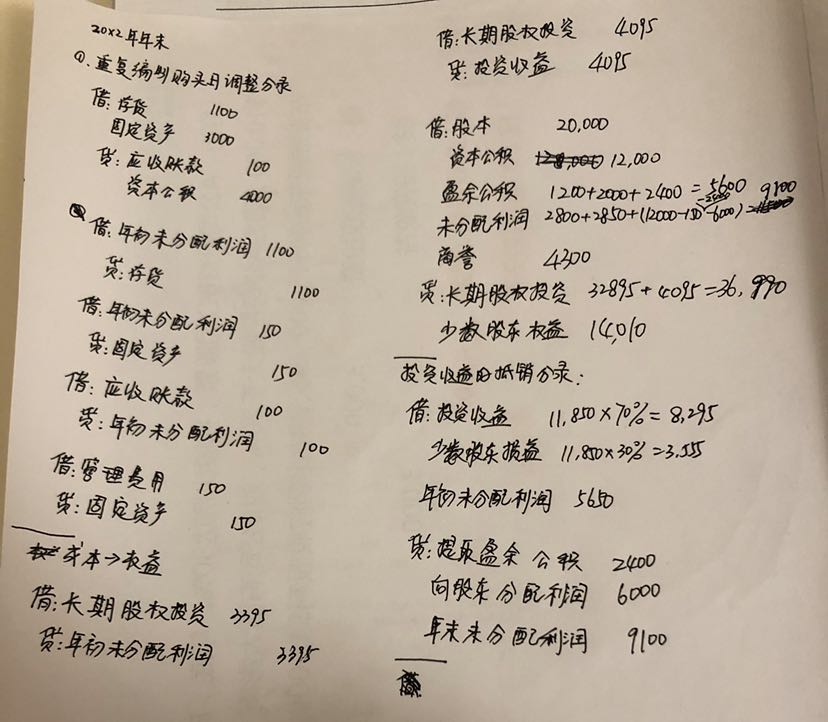 20X2年年末
①.重复编制购买日调整分录
借:存货 1100
固定资产 3000
贷:应收账款 100
资本公积 4000
②借:年初未分配利润 1100
贷:存货 1100
借:年初未分配利润 150
贷:固定资产 150
借:应收账款 100
贷:年初未分配利润 100
借:管理费用 150
贷:固定资产 150
成本→权益
借:长期股权投资 3395
贷:年初未分配利润 3395
借:长期股权投资 4095
贷:投资收益 4095
借:股本 20,000
资本公积 12,000
盈余公积 1200+2000+2400=5600
未分配利润 2800+2850+(12000-150-2400-6000)=9100
商誉 4300
贷:长期股权投资 32895+4095=36,990
少数股东权益 14,010
投资收益的抵销分录:
借:投资收益 11,850×70%=8,295
少数股东损益 11,850×30%=3,555
年初未分配利润 5650
贷:提取盈余公积 2400
向股东分配利润 6000
年末未分配利润 9100